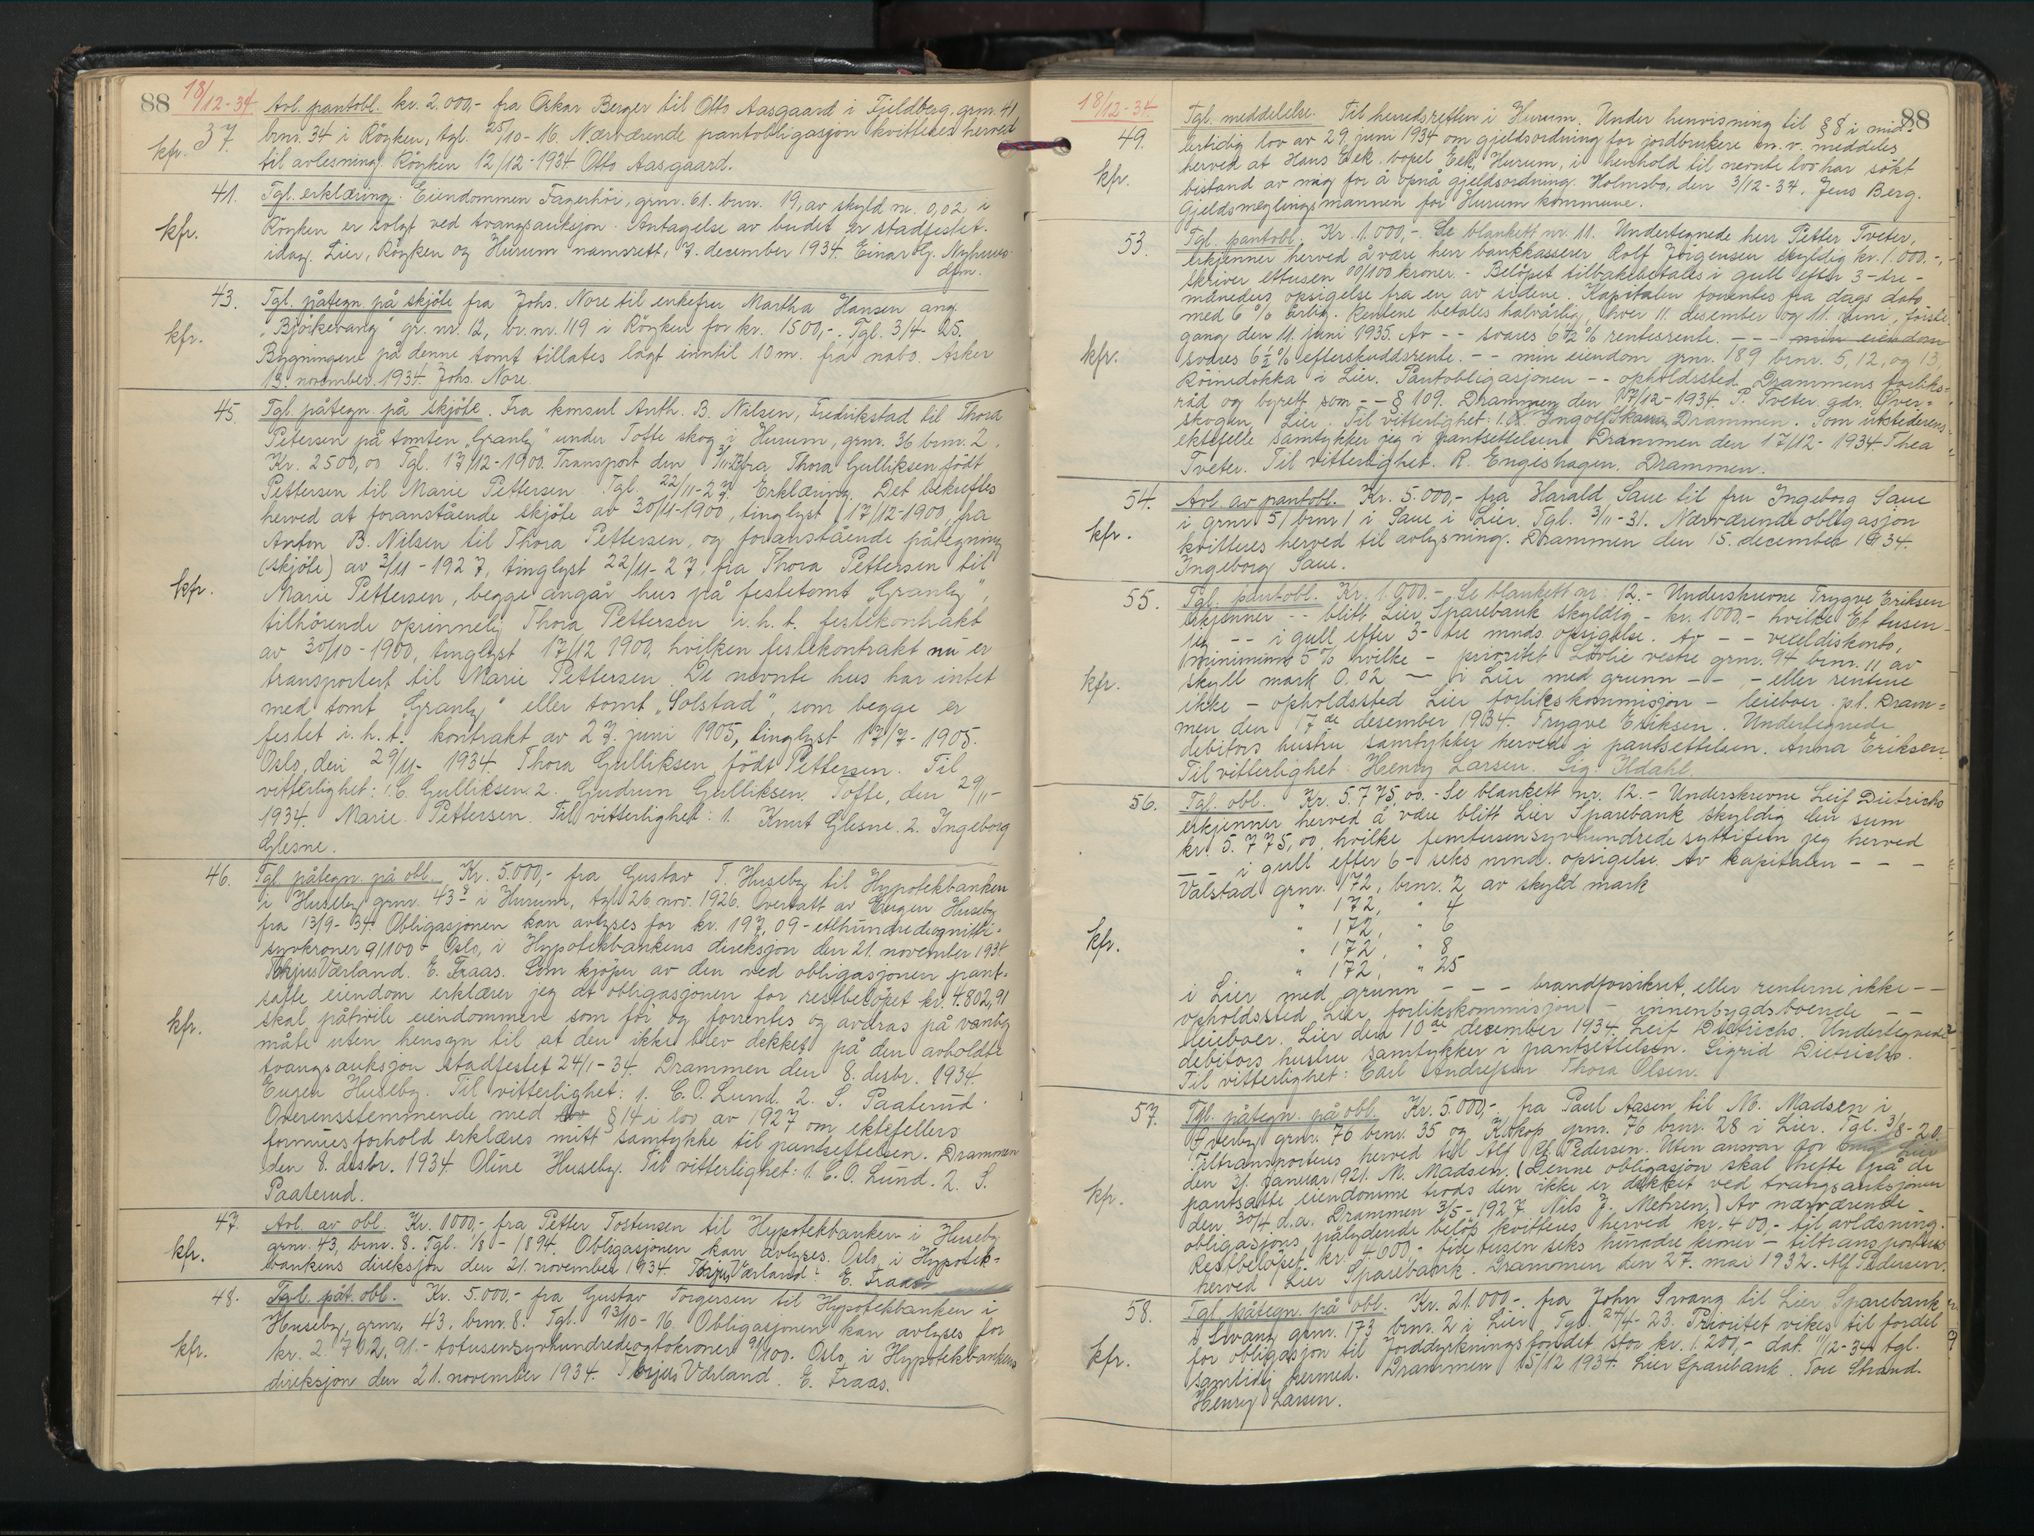 88
18/12-34
Avl. pantobl. kr. 2.000,- fra Oskar Berger til Otto Aasgaard i Fjeldberg, grnr. 41
kfr. 37. brnr. 34 i Röyken, tgl. 25/10-16. Nærværende pantobligasjon kvitteres herved
til avlesning. Röyken 12/12-1934 Otto Aasgaard.
41. Tgl. erklæring. Eiendommen Fagerhöi, grnr. 61. brnr. 19, av skyld m. 0,02, i
kfr. Röyken er solgt ved tvangsauksjon. Antagelse av budet er stadfestet
idag. Lier, Röyken og Hurum namsrett, 7. december 1934. Einar G. Nyhuus
dfm.
43. Tgl. påtegn på skjöte fra Johs. Nore til enkefru Martha Hansen ang.
kfr. "Bjöikevang" gr. nr. 12, br. nr. 119 i Röyken for kr. 1500,-. Tgl. 3/4 25.
Bygningene på denne tomt tillates lagt inntil 10 m. fra nabo. Asker
13. november 1934. Johs. Nore.
45. Tgl. påtegn. på skjöte. Fra konsul Anth. B. Nilsen, Fredrikstad til Thora
Petersen på tomten „Granly" under Tofte skog i Hurum, grnr. 36 brnr. 2.
Kr. 2500,00 Tgl. 17/12-1900. Transport den 3/11-27 fra Thora Gulliksen född
Pettersen til Marie Pettersen. Tgl. 22/11-27. Erklæring. Det bekreftes
herved at foranstående skjöte av 30/11-1900, tinglyst 17/12-1900, fra
Anton B. Nilsen til Thora Pettersen, og foranstående påtegning
(skjöte) av 3/11-1927, tinglyst 22/11-27, fra Thora Pettersen til
kfr. Marie Pettersen, begge angår hus på festetomt „Granly",
tilhörende oprinnelig Thora Pettersen i.h.t. festekontrakt
av 30/10-1900, tinglyst 17/12 1900, hvilken festekontrakt nu er
transportert til Marie Pettersen. De nevnte hus har intet
med tomt „Granly" eller tomt „Solstad", som begge er
festet i.h.t. kontrakt av 27. juni 1905, tinglyst 17/7-1905.
Oslo, den 29/11- 1934. Thora Gulliksen, född Pettersen. Til
vitterlighet: 1. C. Gulliksen. 2. Gudrun Gulliksen. Tofte, den 29/11-
1934. Marie Pettersen. Til vitterlighet: 1. Knut Glesne. 2. Ingeborg
Glesne.
46. Tgl. påtegn. på obl. Kr. 5.000,- fra Gustav T. Huseby til Hypotekbanken
i Huseby grnr. 43 i Hurum, tgl. 26. nov. 1926. Overtatt av Eugen Huseby
fra 13/9-34. Obligasjonen kan avlyses for kr. 197,09 - etthundredeognitti-
syvkroner 9/100 - Oslo, i Hypotekbankens direksjon den 21. november 1934
Torjus Værland. E. Traas. Som kjöper av den ved obligasjonen pant-
satte eiendom erklærer jeg at obligasjonen for restbelöpet kr. 4.802,91
kfr. skal påhvile eiendommen som för og forrentes og avdras på vanlig
måte uten hensyn til at den ikke blev dekket på den avholdte
tvangsauksjon stadfestet 24/1-34. Drammen den 8. desbr. 1934.
Eugen Huseby. Til vitterlighet: 1. C. O. Lund. 2. S. Paaterud.
Overensstemmende med § 14 i lov av 1927 om ektefellers
formuesforhold erklæres mitt samtykke til pantsettelsen. Drammen
den 8. desbr. 1934 Oline Huseby. Til vitterlighet: 1. C. O. Lund. 2. S.
Paaterud.
47. Avl. av obl. Kr. 1000,- fra Petter Tostensen til Hypotekbanken i Huseby
kfr. grnr. 43, brnr. 8. Tgl. 1/8-1894. Obligasjonen kan avlyses. Oslo, i Hypotek-
bankens direksjon den 21. november 1934. Torjus Værland. E. Traas
48. Tgl. påt. obl. Kr. 5.000,- fra Gustav Torgersen til Hypotekbanken i
Huseby, grnr. 43, brnr. 8. Tgl. 13/10-16. Obligasjonen kan avlyses for
kfr. kr. 2.702,91.- totusensyvhundredeogtokroner 91/100. Oslo, i Hypotekbankens
direksjon den 21. november 1934. Torjus Værland. E. Traas.
88
18/12-34
49. Tgl. meddelelse. Til herredsretten i Hurum. Under henvisning til § 8 i mid-
lertidig lov av 29. juni 1934 om gjeldsordning for jordbrukere m. v. meddeles
kfr. herved at Hans Eek. bopel Eek, Hurum, i henhold til nevnte lov har sökt
bistand av mig for å opnå gjeldsordning. Holmsbo, den 3/12-34. Jens Berg.
Gjeldsmeglingsmannen for Hurum kommune.
53. Tgl. pantobl. Kr. 1.000,-. Se blankett nr. 11. Undertegnede herr Petter Tveter,
erkjenner herved å være herr bankkasserer Rolf Jörgensen skyldig kr. 1.000.-,
skriver ettusen 00/100 kroner. - Belöpet tilbakebetales i gull efter 3-tre-
måneders opsigelse fra en av sidene. Kapitalen forrentes fra dags dato
med 6 % årlig. Rentene betales halvårlig, hver 11. desember og 11. juni, förste
gang den 11. juni 1935. Av -- svares 6 1/2 % rentesrente. --- min eiendom
kfr. svares 6 1/2 % efterskuddsrente. -- min eiendom grnr. 189 brnr. 5, 12, og 13,
i Lier. Pantobligasjonen -- opholdssted Drammens forliks-
råd og byrett som -- § 109. Drammen den 17/12-1934. P. Tveter. gdr. Over-
skogen, Lier. Til vitterlighet: Ingolf Drammen. Som utstederens
ektefelle samtykker jeg i pantsettelsen. Drammen den 17/12-1934. Thea
Tveter. Til vitterlighet. R. Engeshagen. Drammen.
54. Avl. av pantobl. Kr. 5.000,- fra Harald Saue til fru Ingeborg Saue
kfr. i grnr. 51 brnr. 1 i Saue i Lier. Tgl. 3/11-31. Nærværende obligasjon
kvitteres herved til avlysning. Drammen den 15. december 1934.
Ingeborg Saue.
55. Tgl. pantobl. Kr. 1.000.- Se blankett nr. 12.- Underskrevne Trygve Eriksen
erkjenner -- blitt Lier Sparebank skyldig - kr. 1000.- hvilke Et tusen-
jeg -- i gull efter 3-tre mnds. opsigelse. Av -- vekseldiskonto,
(minimum 5 % hvilke - prioritet Lövlie vestre grnr. 94 brnr. 11 av
kfr. skyll mark 0.02 — i Lier med grunn --- eller rentene
ikke - opholdssted Lier forlikskommisjon - leieboer. p.t. Dram-
men den 17de desember 1934. Trygve Eriksen. Undertegnede
debitors hustru samtykker herved i pantsettelsen. Anna Eriksen.
Til vitterlighet: Henry Larsen. Sig. Ildahl.
56. Tgl. obl. Kr. 5.775,00.- Se blankett nr. 12.- Underskrevne Leif Dietrichs
erkjenner herved å være blitt Lier Sparebank skyldig den sum
kr. 5.775,00, hvilke femtusensyvhundredesyttifem jeg herved
-- i gull efter 6-seks mnd. opsigelse. Av kapitalen ---
Valstad grnr. 172, brnr. 2, av skyld mark
" 172, " 4
kfr. " 172, " 6
" 172, " 8
" 172, " 25
i Lier med grunn --- brandforsikret, eller renterne ikke --
opholdssted Lier forlikskommisjon - innenbygdsboende --
leieboer. Lier den 10de december 1934. Leif Dietrichs. Undertegnede
debitors hustru samtykker i pantsettelsen. Sigrid Dietrichs.
Til vitterlighet: Carl Andrejsen Thora Olsen.
57. Tgl. påtegn. på obl. Kr. 5.000,- fra Paul Aasen til M. Madsen i
grnr. 76 brnr. 35 og grnr. 76 brnr. 28 i Lier. Tgl. 3/8-20.
Tiltransporteres herved til Alf Pedersen. Uten ansvar for
den 31. januar 1921. M. Madsen. (Denne obligasjon skal hefte på de
kfr. pantsatte eiendomme trods den ikke er dekket ved tvangsauksjonen
den 30/4 d.a. Drammen 3/5-1927. Nils J. Mehren.) Av nærværende
obligasjons pålydende belöp kvitteres herved kr. 400,- til avlæsning.
Restbelöpet kr. 4600,- fire tusen seks hundre kroner - tiltransporteres
herved Lier Sparebank. Drammen den 27. mai 1932. Alf Pedersen.
58. Tgl. påtegn. på obl. Kr. 21.000.- fra John Svang til Lier Sparebank
i Svang grnr. 173 brnr. 2 i Lier. Tgl. 24/4-23. Prioritet vikes til fordel
kfr. for obligasjon til Jorddyrkningsfondet stor kr. 1.200,- dat. 11/12-34 tgl.
samtidig hermed. Drammen 15/12 1934. Lier Sparebank. Tore Strand.
Henry Larsen.